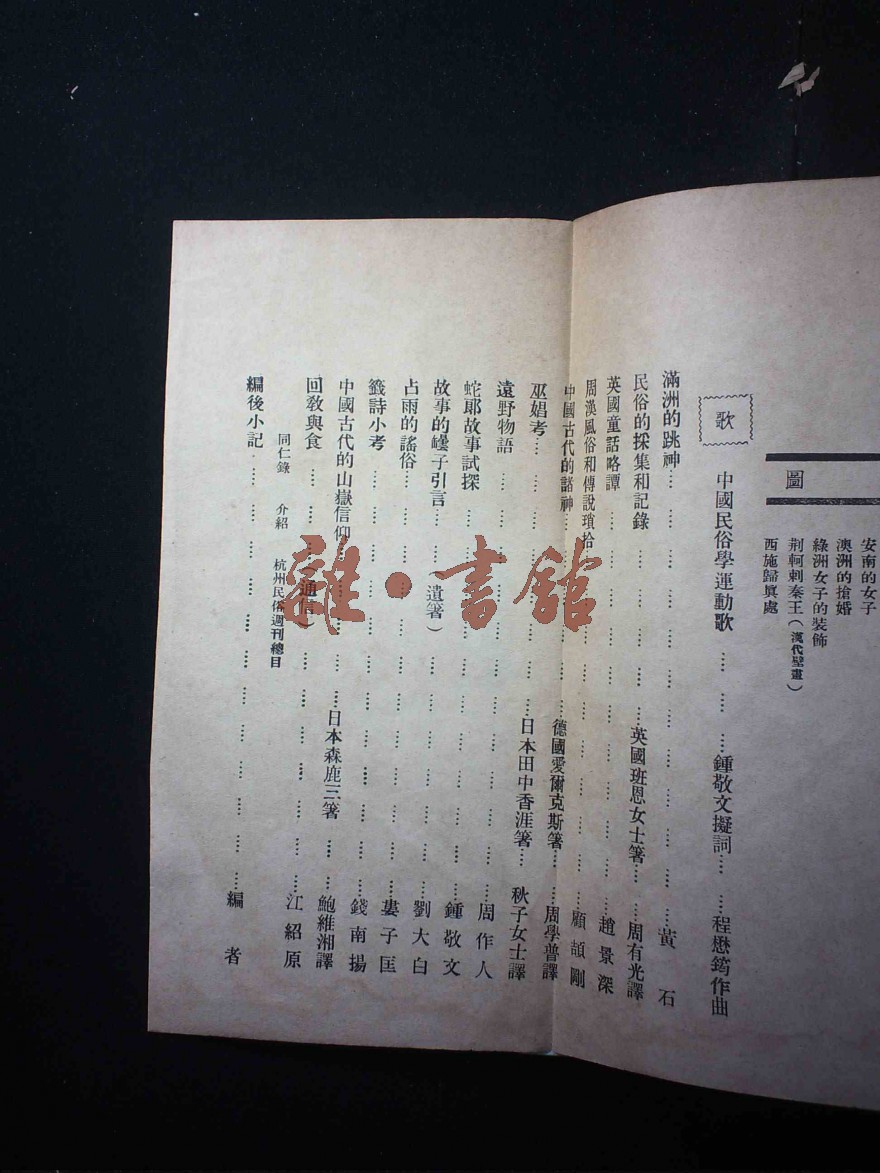 安南的女子
澳洲的搶婚
綠洲女子的裝飾
荆軻刺秦王(漢代壁畫)
西施歸眞處
圖
歌
中國民俗學運動歌…… …… 鍾敬文擬詞…… 程懋筠作曲
滿洲的跳神…… …… 黃石
民俗的採集和記錄…… …… 英國班恩女士箸…… 周有光譯
英國童話略譚…… …… 趙景深
周漢風俗和傳說瑣拾…… …… 顧頡剛
中國古代的諸神…… …… 德國愛爾克斯箸…… 周學普譯
巫娼考…… …… 日本田中香涯箸…… 秋子女士譯
遠野物語…… …… 周作人
蛇郞故事試探…… …… 鍾敬文
故事的罎子引言……(遺箸)…… 劉大白
占雨的謠俗…… …… 婁子匡
籤詩小考…… …… 錢南揚
中國古代的山嶽信仰…… …… 日本森鹿三箸…… 鮑維湘譯
回敎與食…… ……(通信)…… 江紹原
同仁錄 介紹 杭州民俗週刊總目
編後小記…… …… 編者
雜·書館